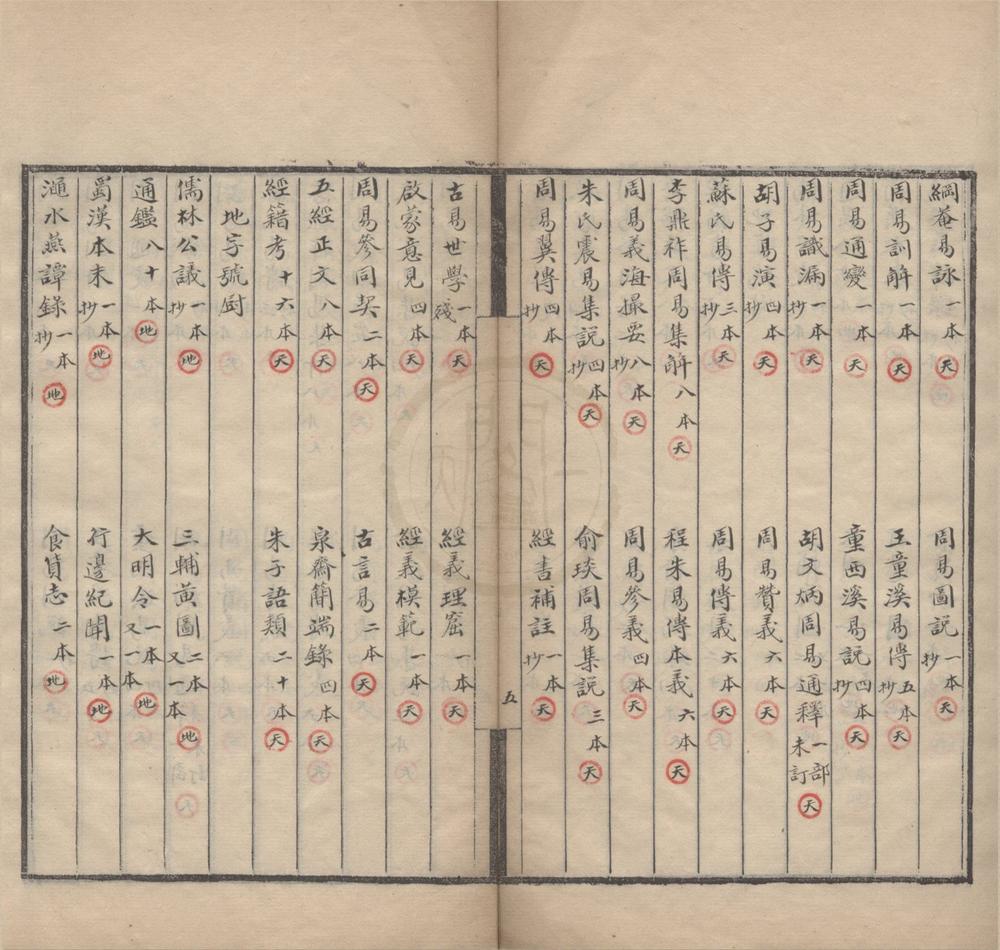 綱菴易詠一本 天 周易圖說一本抄 天
周易訓解一本 天 王童溪易傳五本抄 天
周易通變一本 天 童西溪易說四本抄 天
周易識漏一本抄 天 胡文炳周易通釋一部未訂 天
胡子易演四本抄 天 周易贊義六本 天
蘇氏易傳三本抄 天 周易傳義六本 天
李鼎祚周易集解八本 天 程朱易傳本義六本 天
周易義海撮要八本抄 天 周易參義四本 天
朱氏震易集說四本抄 天 俞琰周易集說三本 天
周易翼傳四本抄 天 經書補註一本抄 天
五
古易世學一本殘 天 經義理窟一本 天
啟蒙意見四本 天 經義模範一本 天
周易參同契二本 天 古言易二本 天
五經正文八本 天 泉齋簡端錄四本 天
經籍考十六本 天 朱子語類二十本 天
地字號厨
儒林公議一本抄 地 三輔黃圖二本又一本 地
通鑑八十本 地 大明令一本又一本 地
蜀漢本末一本抄 地 行邊紀聞一本 地
澠水燕譚錄一本抄 地 食貨志二本 地